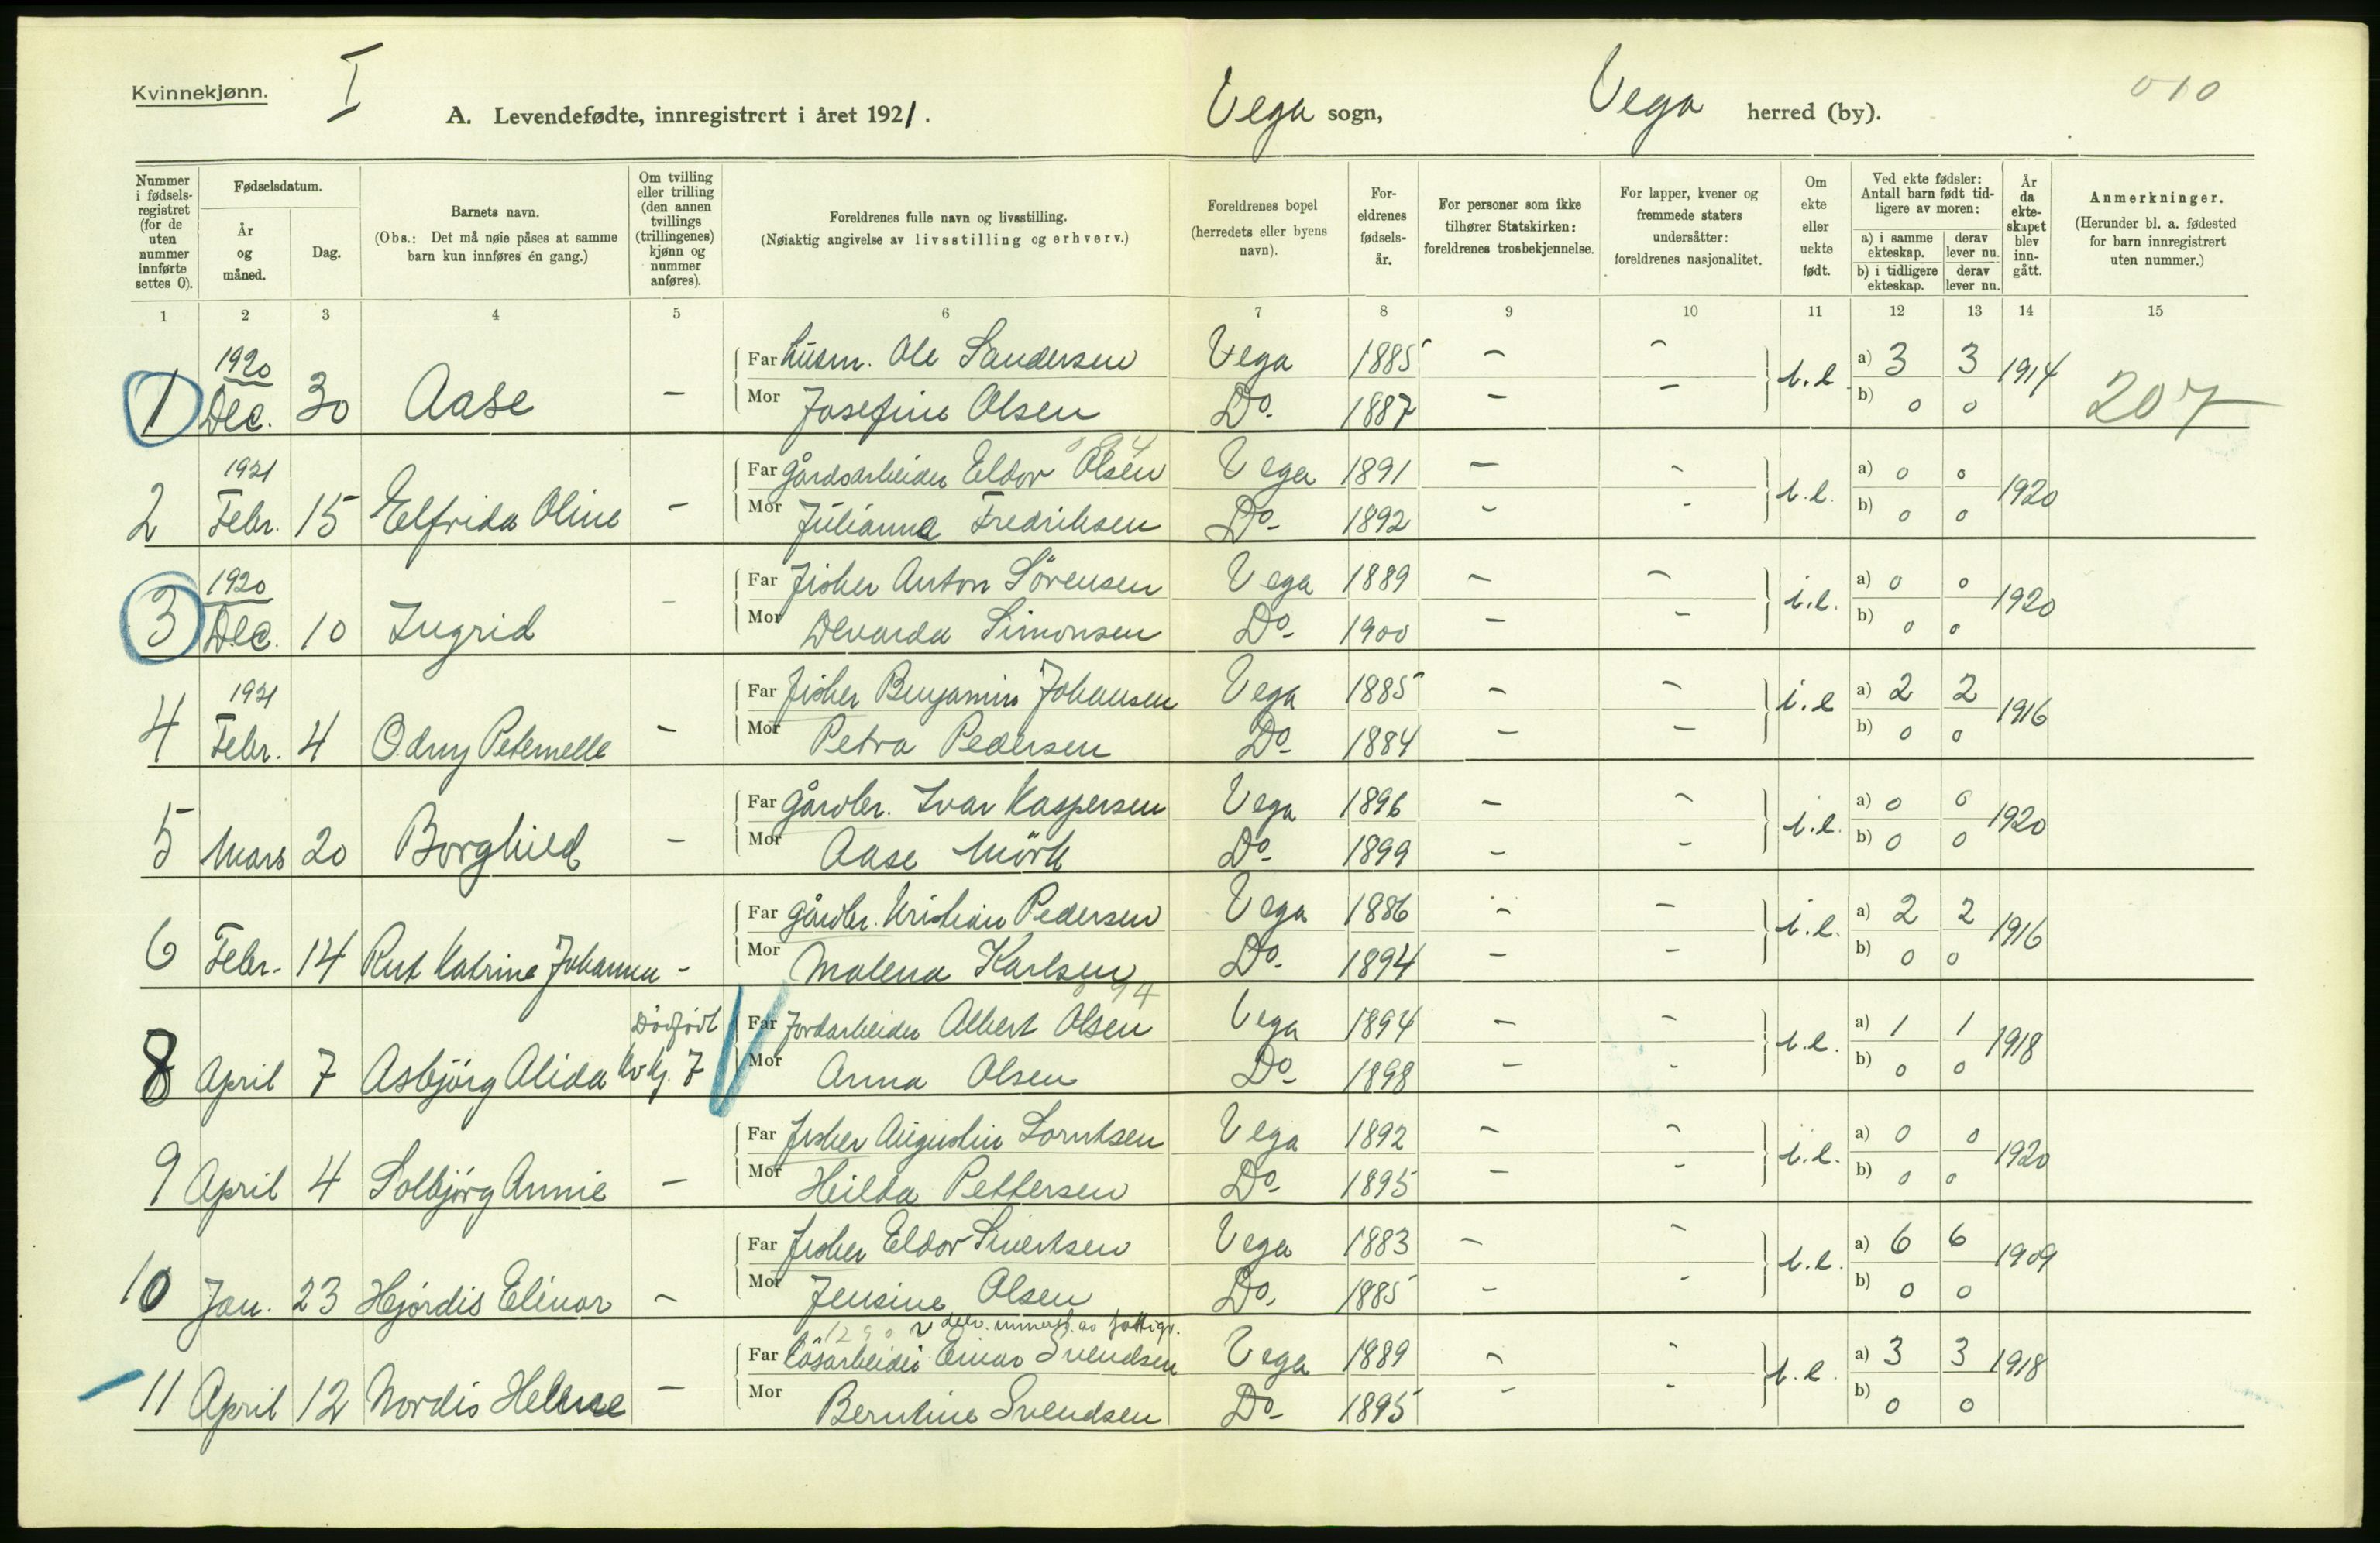 Kvinnekjønn.
I
A. Levendefødte, innregistrert i året 1921.
Vega sogn,
Vega herred (by).
010
Nummer i fødselsregistret (for de uten nummer innførte settes 0).
Fødselsdatum.
År og måned.
Dag.
Barnets navn.
(Obs.: Det må nøie påses at samme barn kun innføres én gang.)
Om tvilling eller trilling (den annen tvillings (trillingenes) kjønn og nummer anføres).
Foreldrenes fulle navn og livsstilling.
(Nøiaktig angivelse av livsstilling og erhverv.)
Foreldrenes bopel (herredets eller byens navn).
Foreldrenes fødselsår.
For personer som ikke tilhører Statskirken: foreldrenes trosbekjennelse.
For lapper, kvener og fremmede staters undersåtter: foreldrenes nasjonalitet.
Om ekte eller uekte født.
Ved ekte fødsler: Antall barn født tidligere av moren:
a) i samme ekteskap. derav lever nu.
b) i tidligere ekteskap. derav lever nu.
År da ekteskapet blev inngått.
Anmerkninger.
(Herunder bl. a. fødested for barn innregistrert uten nummer.)
1 2 3 4 5 6 7 8 9 10 11 12 13 14 15
1 1920 Dec. 30 Aase - Far husm. Ole Sandersen Vega 1885 - - i.e a) 3 3 1914 207
Mor Josefine Olsen Do- 1887 - - b) 0 0
2 1921 Febr. 15 Elfrida Oline - Far Gårdsarbeider Eldor Olsen Vega 1891 - - i.e. a) 0 0 1920
Mor Julianna Fredriksen Do- 1892 - - b) 0 0
3 1920 Dec. 10 Ingrid - Far Fisker Anton Sörensen Vega 1889 - - i.e. a) 0 0 1920
Mor Devarda Simonsen Do- 1900 - - b) 0 0
4 1921 Febr. 4 Odny Peternelle - Far Fisker Benjamin Johansen Vega 1885 - - i.e a) 2 2 1916
Mor Petra Pedersen Do- 1884 - - b) 0 0
5 Mars 20 Borghild - Far Gårdbr. Ivar Kaspersen Vega 1896 - - i.e. a) 0 0 1920
Mor Aase Mörk Do- 1899 - - b) 0 0
6 Febr. 14 Rut Katrine Johanna - Far Gårdbr. Kristian Pedersen Vega 1886 - - i.e. a) 2 2 1916
Mor Malena Karlsen Do- 1894 - - b) 0 0
8 April 7 Asbjörg Alida Dödfödt Kv kj. 7 Far Jordarbeider Albert Olsen Vega 1894 - - i.e. a) 1 1 1918
Mor Anna Olsen Do- 1898 - - b) 0 0
9 April 4 Solbjörg Annie - Far Fisker Augustin Lorntsen Vega 1892 - - i.e. a) 0 0 1920
Mor Heilda Pettersen Do- 1895 - - b) 0 0
10 Jan. 23 Hjördis Elinor - Far Fisker Eldor Sivertsen Vega 1883 - - i.e. a) 6 6 1909
Mor Jensine Olsen Do. 1885 - - b) 0 0
11 April 12 Nordis Helene - Far Lösarbeider Einar Svendsen Vega 1889 - - i.e. a) 3 3 1918
Mor Berntine Svendsen Do- 1895 - - b) 0 0